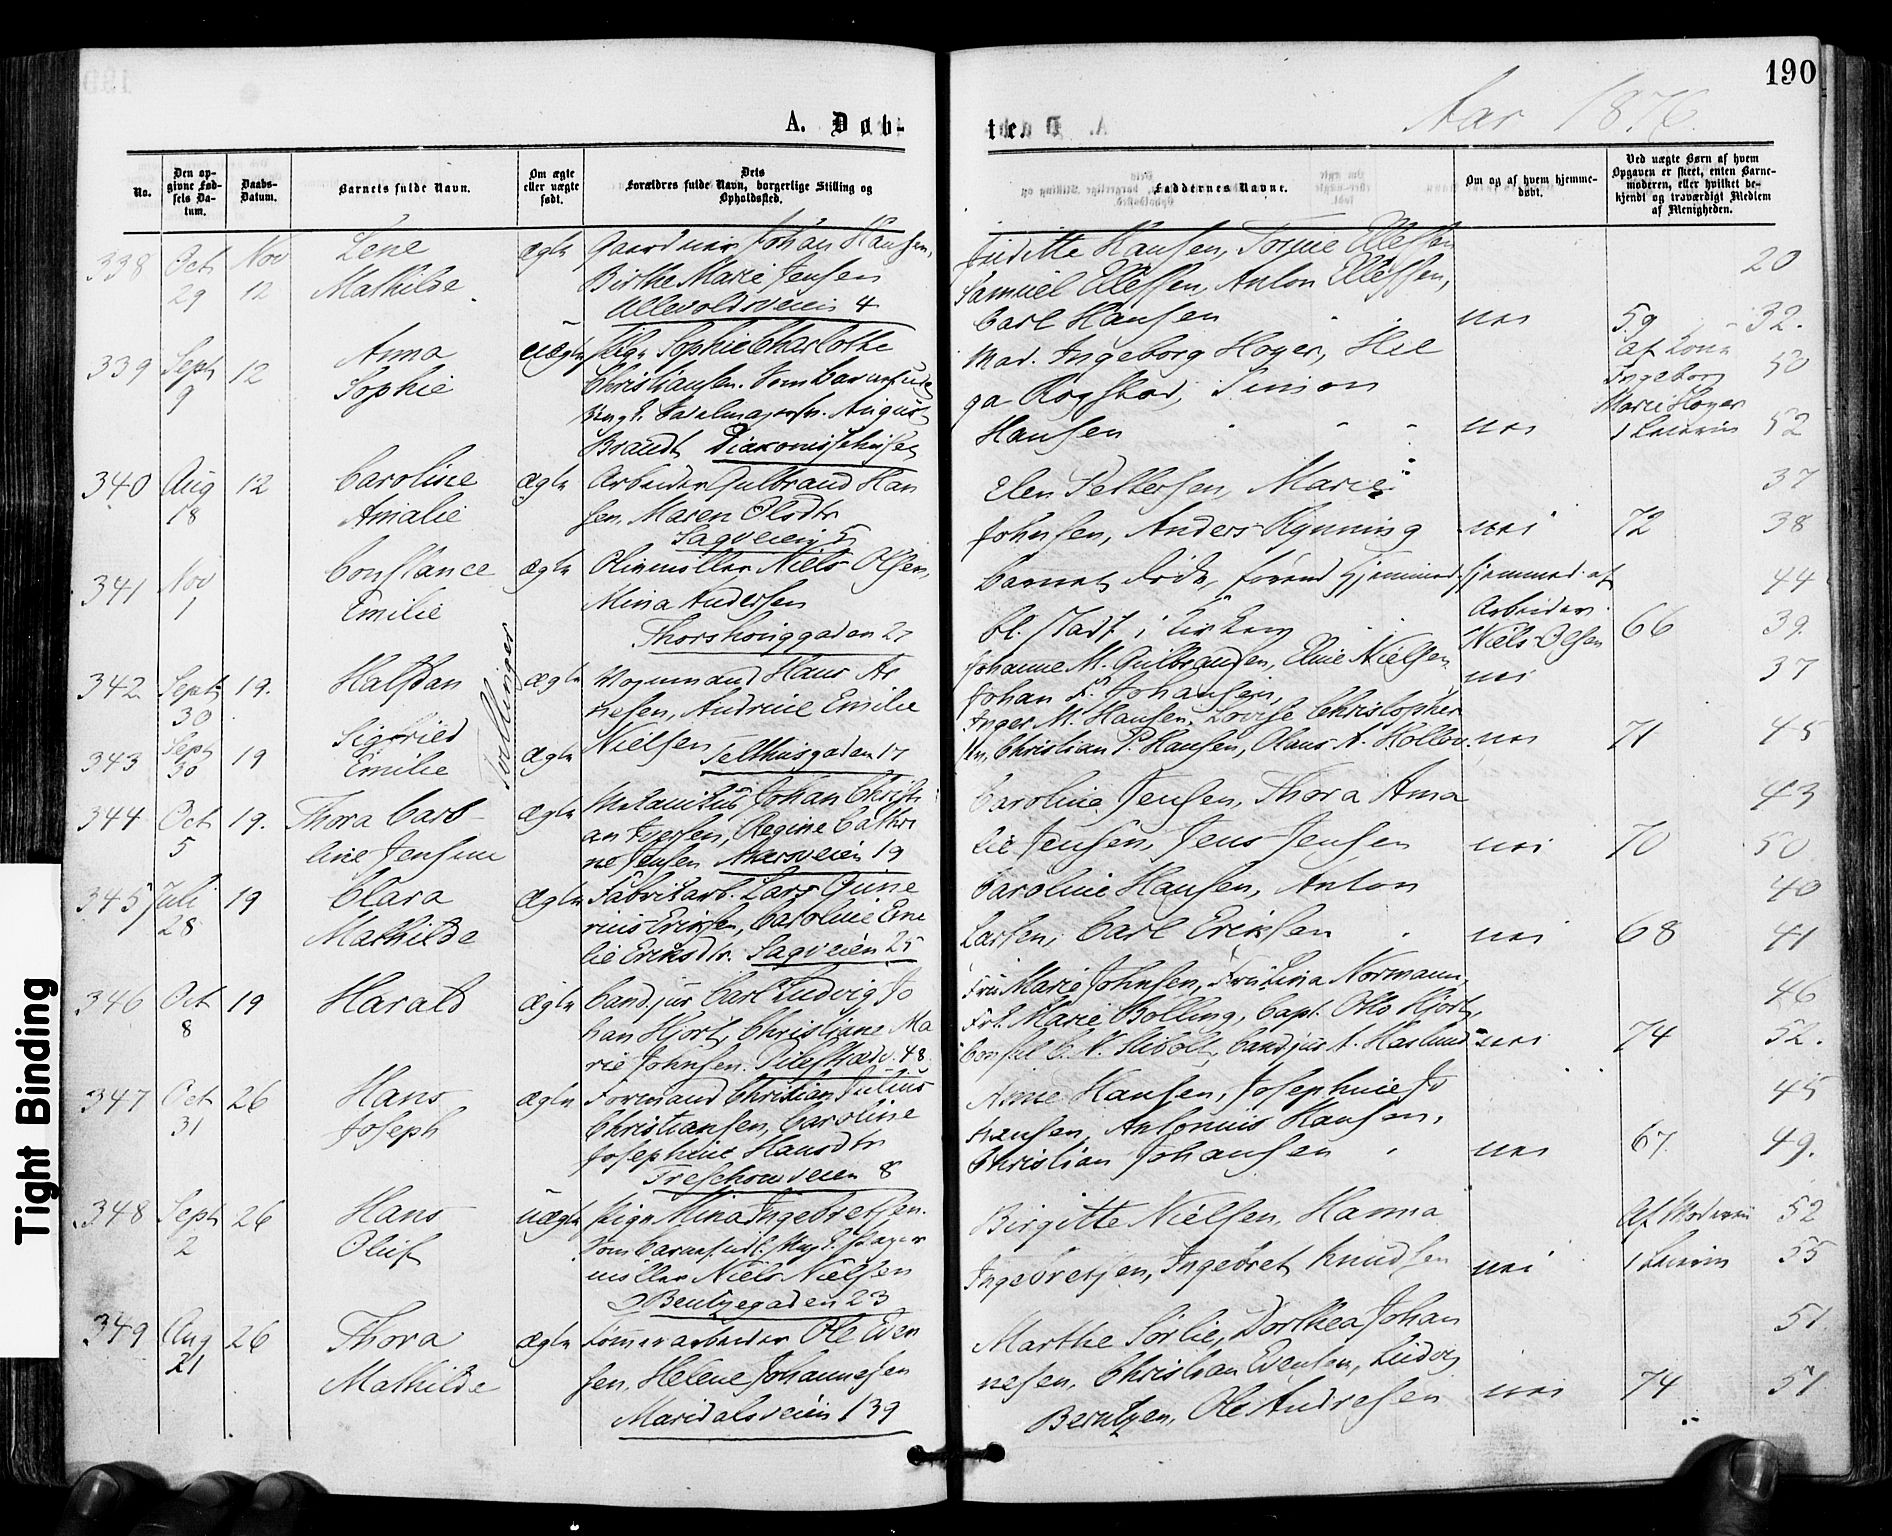 190
A. Døb-
te.
Aar 1876.
No.
Den op-
givne Fød-
sels Da-
tum.
Daabs-
Datum.
Barnets fulde Navn.
Om ægte
eller uægte
født.
Dets
Forældres fulde Navn, borgerlige Stilling og
Opholdssted.
Faddernes Navne.
Om og af hvem hjemme-
døbt.
Ved uægte Børn af hvem
Opgaven er skeet, enten Barne-
moderen, eller hvilket be-
kjendt og troværdigt Medlem
af Menigheden.
338 Oct 29 Nov 12
Lene
Mathilde
ægte
Gaardmir Johan Hansen,
Birthe Marie Jensen
Ullevoldsveien 4
Juditte Hansen, Tomine Ellefsen
Samuel Ellefsen, Anton Ellefsen,
Carl Hansen
nei
59
20
32.
339 Sept 9 12
Anna
Sophie
uægte
Pige Sophie Charlotte
Christiansen. Som Barnefader
Ung. Sadelmagersv. August
Brandt Diakonissehuset
Mad. Ingeborg Høyer, Hel
ga Rogstad, Simon
Hansen
nei
af Kone
Ingeborg
Marie Høyer
1 Leiervm
50
52
340 Aug 18 12
Caroline
Amalie
ægte
Arbeider Gulbrand Han
sen, Maren Olsdtr
Sagveien 5
Elen Pettersen, Marie
Johnsen, Anders Kynning
nei
72
37
38
341 Nov 1
Constance
Emilie
ægte
Oliemøller Niels Olsen,
Mina Andersen
Thorshouggaden 27
Barnet døde, førend Hjemmed.
bl. stadf. i Kirken
Hjemmed. af
Arbeider
Niels Olsen
66
44
39.
342 Sept 30 19.
Halfdan
Tvillinger
ægte
Vognmand Hans Ar
nesen, Andrine Emilie
Nielsen Telthusgaden 17
Johanne M. Gulbrandsen, Eline Nielsen
Johan F. Johansen,
nei
37
343 Sept 30 19
Sigfried
Emilie
ægte
Inger M. Hansen, Lovise Christopher
sen, Christian P. Hansen, Olaus A. Holter.
nei
71
45
344 Oct 5 19.
Thora Caro-
line Jensine
ægte
Mekanikus Johan Christi
an Iversen, Regine Cathri
ne Jensen Akersveien 19
Caroline Jensen, Thora Ama
lie Jensen, Jens Jensen
nei
70
43
50
345 Juli 28 19
Clara
Mathilde
ægte
Fabrikarb. Lars Gune
rius Eriksen, Caroline Eme
lie Eriksdtr. Sagveien 25
Caroline Hansen, Anton
Larsen, Carl Eriksen
nei
68
40
41
346 Oct 8 19
Harald
ægte
Cand. jur Carl Ludvig Jo
han Hjort, Christiane Ma
rie Johnsen. Pilestræde 48.
Fru Marie Johnsen, Fru Lina Normann,
Frk. Marie Bølling, Capt. Otto Hjort,
Consul C. A. Stibolt, Cand jur A. Haslund
nei
74
46
52.
347 Oct 31 26
Hans
Joseph
ægte
Formand Christian Julius
Christiansen, Caroline
Josephine Hansdtr
Treschowsveien 8
Anne Hansen, Josephine Jo
hansen, Antonius Hansen,
Christian Johansen
nei
67.
45
49.
348 Sept 2 26
Hans
Oluf
uægte
Pige Mina Ingebretsen.
Som Barnefad. Ung. Pager
møller Niels Nielsen
Bentzegaden 23
Birgitte Nielsen, Hanna
Ingebretsen, Ingebret Knudsen
nei
Af Moderen
1 Leiervm
52
55
349 Aug 21 26
Thora
Mathilde
ægte
Tømmerarbeider Ole Even
sen, Helene Johannesen
Maridalsveien 139
Marthe Sørlie, Dorthea Johan
nesen, Christian Evensen, Ludvig
Berntzen, Ole Andresen
nei
74
51
51
Tight Binding